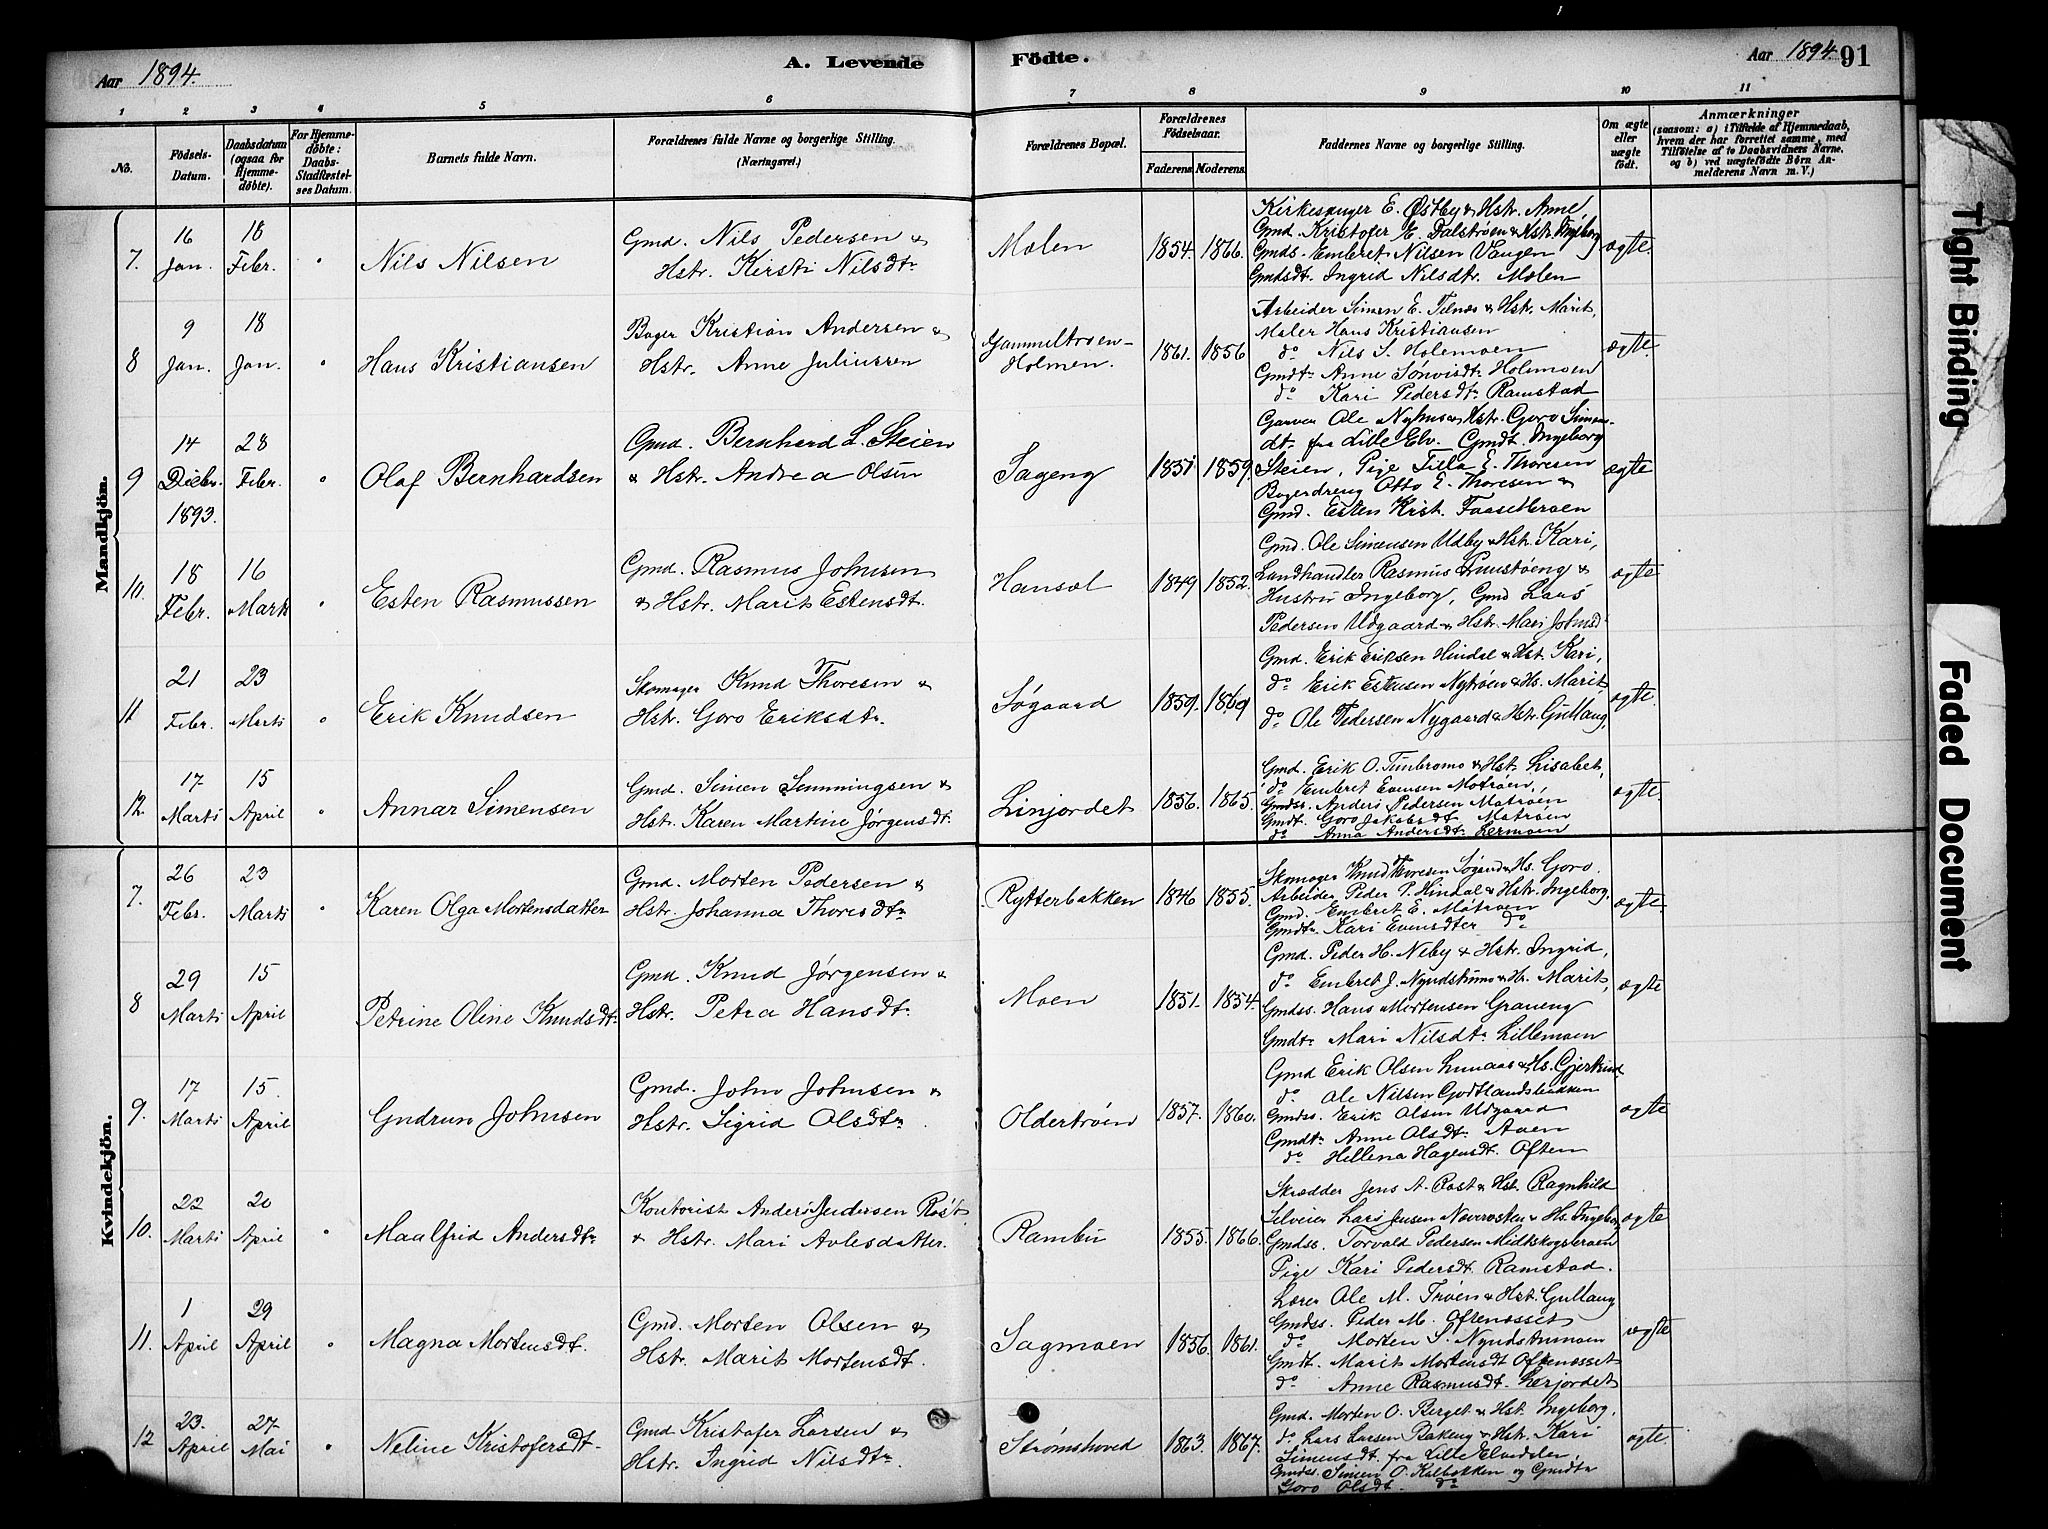 Aar 1894.
A. Levende Födte.
Aar 1894. 91
1 2 3 4 5 6 7 8 9 10 11
No.
Födsels-Datum.
Daabsdatum (ogsaa for Hjemmedöbte).
For Hjemmedöbte: Daabs-Stadfæstelses Datum.
Barnets fulde Navn.
Forældrenes fulde Navne og borgerlige Stilling. (Næringsvei.)
Forældrenes Bopæl.
Forældrenes Födselsaar.
Faderens. Moderens.
Faddernes Navne og borgerlige Stilling.
Om ægte eller uægte födt.
Anmærkninger
(saasom: a) i Tilfælde af Hjemmedaab, hvem der har forrettet samme, med Tilföielse af to Daabsvidners Navne, og b) ved uægtefödte Börn Anmelderens Navn m. V.)
Mandkjön.
7. 16 Jan. 18 Febr. " Nils Nilsen
Gmd. Nils Pedersen &
Hstr. Kirsti Nilsdtr
Molen 1854. 1866.
Kirkesanger E. Østby & Hstr. Anne
Gmd. Kristofer E. Dalstrøen & Hstr. Ingeborg
Gmds. Embret Nilsen Vangen
Gmdsdt. Ingrid Nilsdtr. Molen
ægte.
8 9 Jan. 18 Jan. " Hans Kristiansen
Bager Kristian Andersen &
Hstr. Anne Juliussen
Gammeltroen-
Holmen. 1861. 1856
Arbeider Simen E. Telnæs & Hstr. Marit,
Maler Hans Kristiansen
do Nils S. Holemoen
Gmdtr. Anne Holemoen
do Kari Pedersdtr Ramstad
ægte.
9 14 Decbr. 1893. 28 Febr. " Olaf Bernhardsen
Gmd. Bernhard L. Steien
& Hstr. Andrea Olsen
Sageng 1851 1859.
Garver Ole Nyhus & Hstr. Goro Simens-
dt. fra Lille Elv. Gmdt. Ingeborg
Steien, Pige Tilla E. Thoresen
Bagerdreng Otto E. Thoresen &
Gmd. Esten Krist. Faasetbroen
ægte
10. 18 Febr. 16 Marts " Esten Rasmussen
Gmd. Rasmus Johnsen
& Hstr. Marit Estensdt.
Hansol 1849 1852.
Gmd. Ole Simensen Udby & Hstr. Kari,
Landhandler Rasmus &
Hustru Ingeborg, Gmd Lars
Pedersen Udgaard & Hstr. Mari Johnsd
ægte
11 21 Febr. 23 Marts " Erik Knudsen
Skomager Knud Thoresen &
Hstr. Goro Eriksdtr.
Søgaard 1859. 1869
Gmd. Erik Eriksen Hindal & Hst. Kari,
do Erik Estensen Nytrøen & Hs. Marit,
do Ole Pedersen Nygaard & Hstr. Gullaug,
ægte.
12. 17 Marts 15 April " Annar Simensen
Gmd. Simen Semmingsen &
Hstr. Karen Martine Jørgensdt.
Linjordet 1856. 1865.
Gmd. Erik O. Tunbromo & Hst. Lisabet,
do Embret Evensen Motrøen,
Gmdss. Anders Pedersen Motrøen
Gmdt. Goro Jakobsdt Motrøen
do Anna Andersdt. Lermoen
ægte.
Kvindekjön.
7. 26 Febr. 23 Marts " Karen Olga Mortensdatter
Gmd. Morten Pedersen &
Hstr. Johanna Thoresdtr
Rytterbakken 1846 1855.
Skomager Knud Thoresen Søgard & Hs. Goro.
Arbeider Peder P. Hindal & Hstr. Ingeborg.
Gmd. Embret E. Motrøen
Gmdtr Kari Evensdter do
ægte.
8 29 Marts 15 April Petrine Oline Knudsdt.
Gmd. Knud Jørgensen &
Hstr. Petra Hansdtr
Moen 1851. 1854.
Gmd. Peder H. Neby & Hstr. Ingrid,
do Embret J. Nyndstumo & Hs. Marit,
Gmdss. Hans Mortensen Graneng
Gmdtr Mari Nilsdtr Lillemoen
ægte
9. 17 Marts 15. April Gudrun Johnsen
Gmd. John Johnsen &
Hstr. Sigrid Olsdtr
Oldertrøen 1857. 1860.
Gmd Erik Olsen Lunaas & Hs. Gjertrud
do Ole Nilsen Godtlandsbakken
Gmdss. Erik Olsen Udgaard
Gmdtr. Anne Olsdt. Aaen
do Hellena Hagensdt. Often
ægte
10. 22 Marts 20 April " Maalfrid Andersdtr
Kontorist Anders Jendersen Røst
& Hstr. Mari Avlesdatter.
Rambu 1855. 1866.
Skrædder Jens A. Rost & Hst. Ragnhild
Lars Jensen & Hs. Ingeborg
Gmdss. Torvald Pedersen Midtskogstrøen
Pige Kari Pedersdt. Ramstad.
ægte
11. 1 April 29 April " Magna Mortensdt.
Gmd. Morten Olsen &
Hstr. Marit Mortensdt.
Sagmoen 1856. 1861.
Lærer Ole M. Trøen & Hst. Gullaug
Gmdss. Peder M. Oftenæsset
do Morten S. Nyndstumoen
Gmdt. Marit Mortensdt Oftenæsset
do Anne Rasmusdt. Lerjordet
ægte
12 23. April 27 Mai " Neline Kristofersdt.
Gmd Kristofer Larsen &
Hstr. Ingrid Nilsdtr.
Strømshoved 1863. 1867.
Gmd. Morten O. Berget & Hst Ingeborg.
do Lars Larsen Bakeng & Hstr. Kari
Simensdt. fra Lille Elvedalen
Gmdss. Simen O. Kolbakken og Gmdtr
Goro Olsdt. do
ægte.
Tight Binding
Faded Document